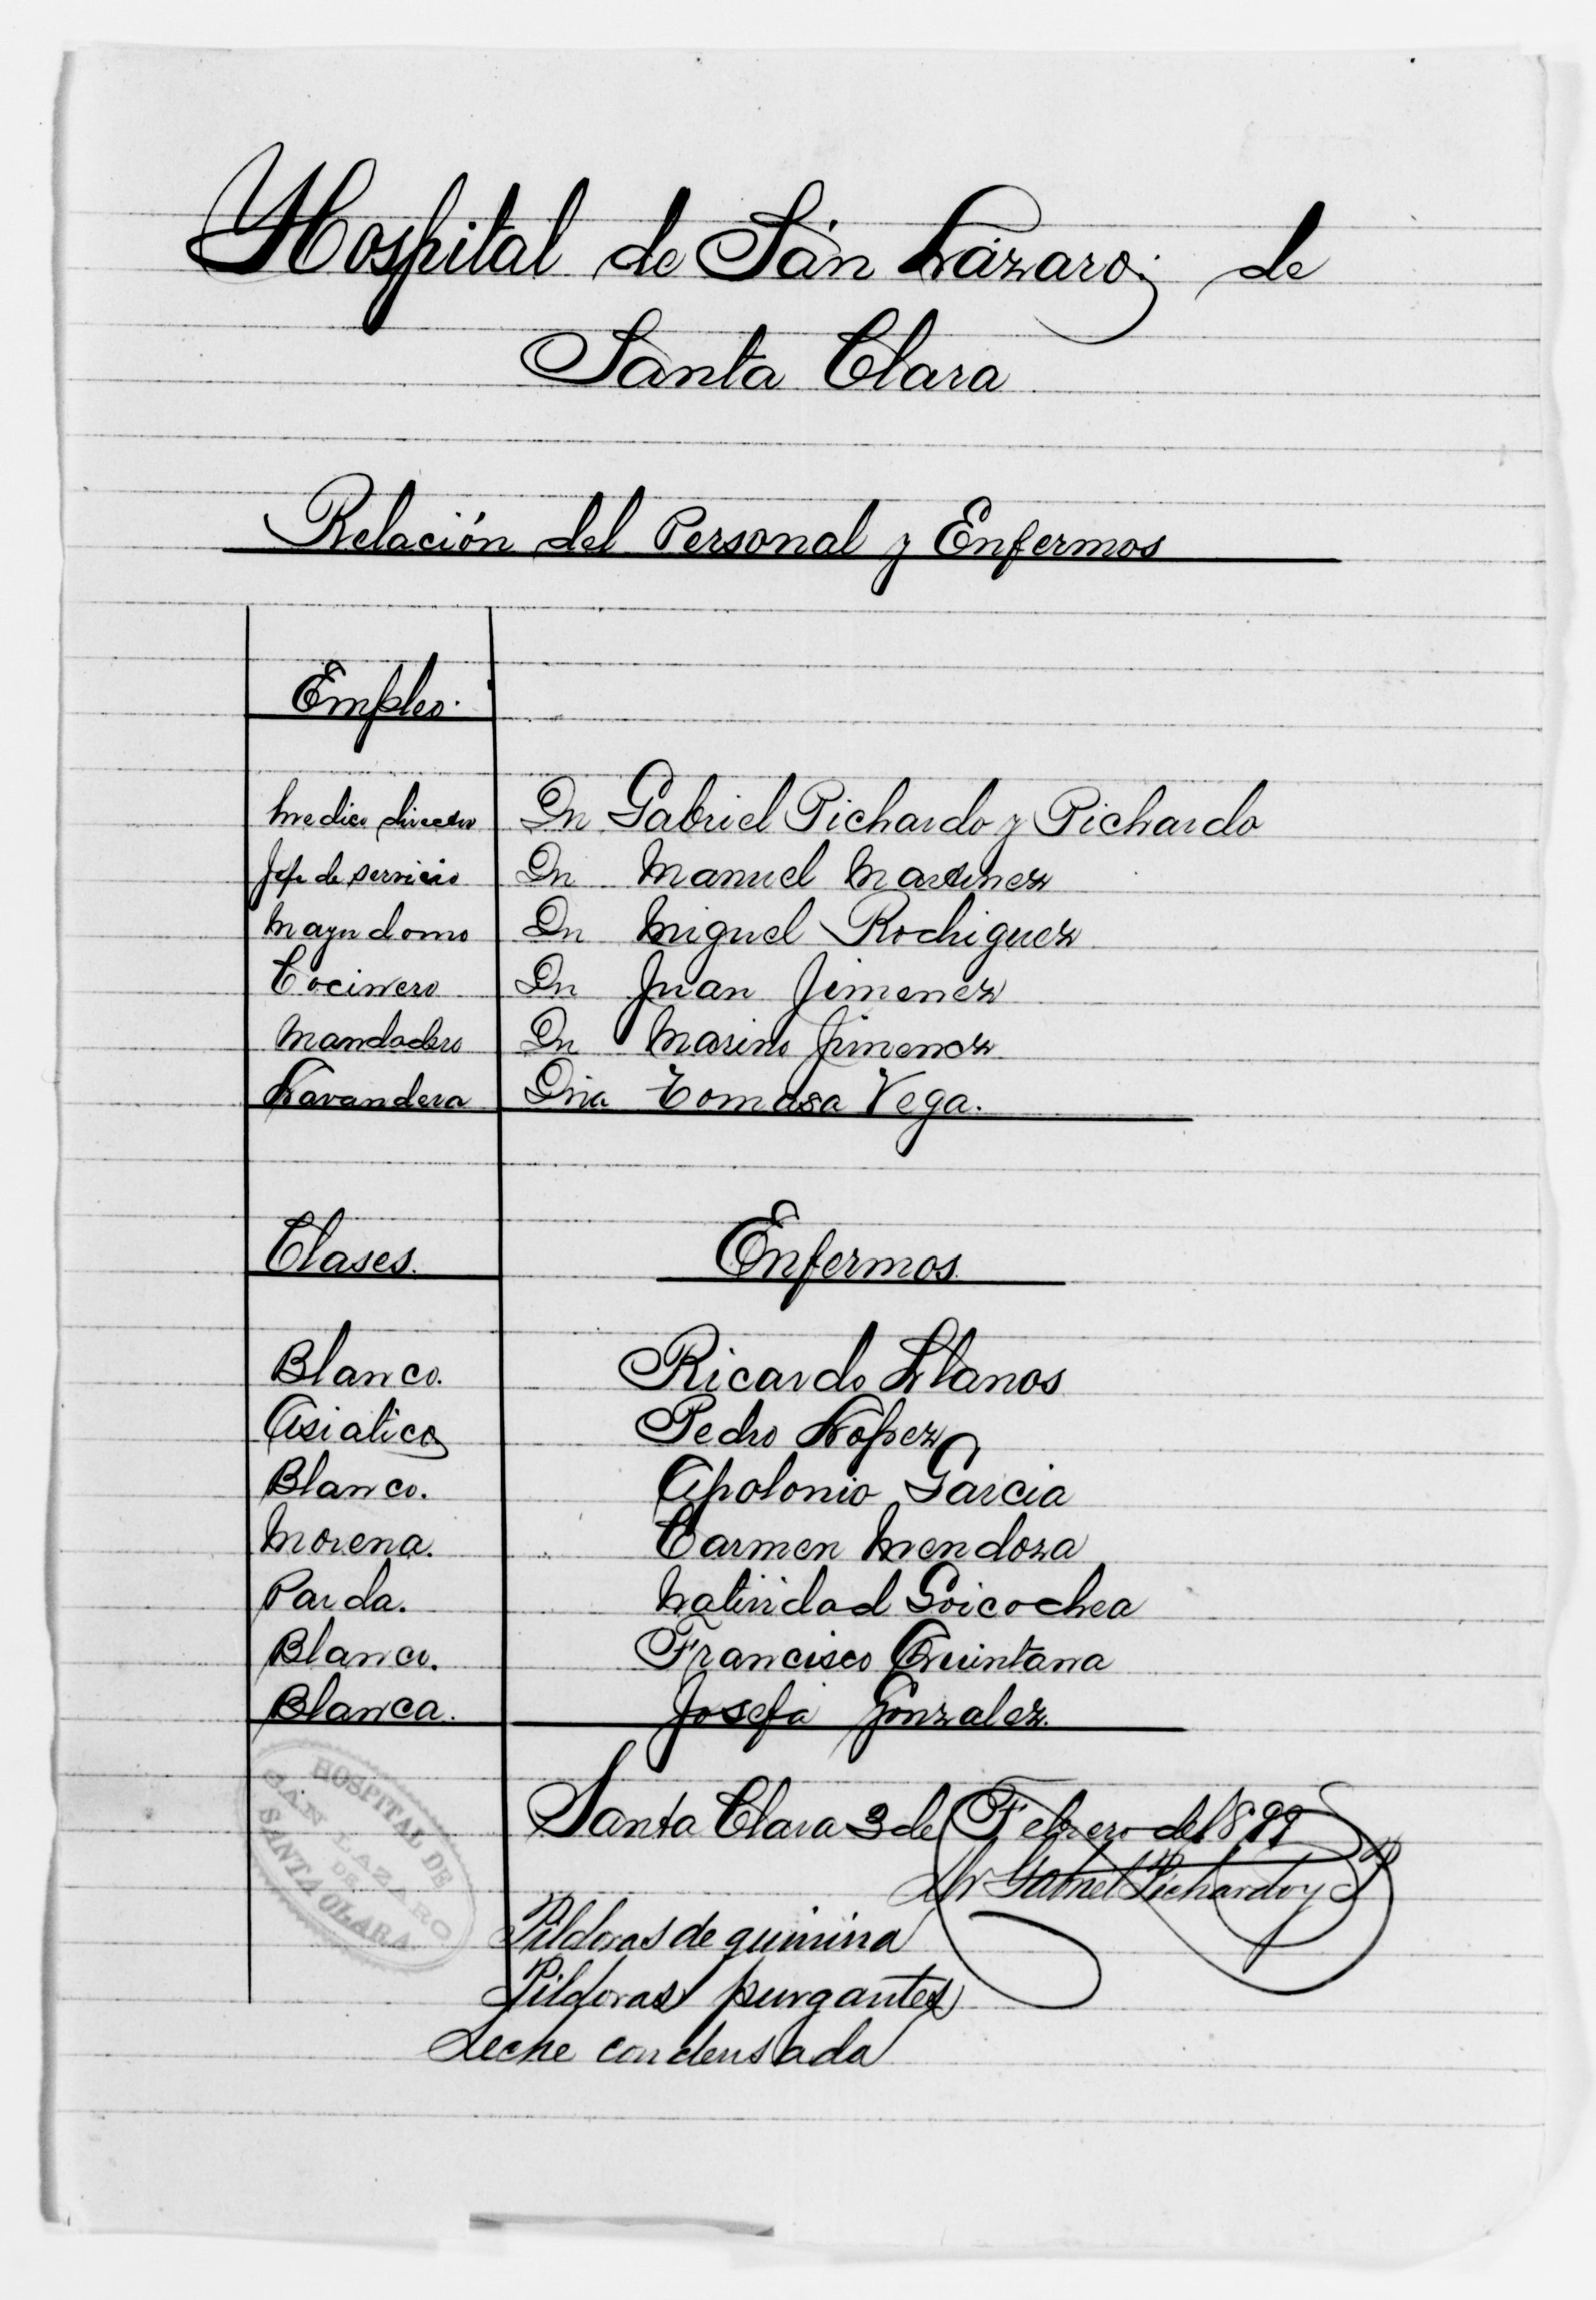 Hospital de San Lázaro, de
Santa Clara
Relación del Personal y Enfermos
Empleo.
Medico director Dn Gabriel Pichardo y Pichardo
Jefe de servicio Dn Manuel Martinez
Mayordomo Dn Miguel Rodriguez
Cocinero Dn Juan Jimenez
Mandadero Dn Marino Jimenez
Lavandera Dña Tomasa Vega.
Clases. Enfermos.
Blanco. Ricardo Llanos
Asiatico Pedro Lopez
Blanco. Apolonio Garcia
Morena. Carmen Mendoza
Parda. Natividad Goicochea
Blanco. Francisco Quintana
Blanca. Josefa Gonzalez.
Santa Clara 3 de Febrero de 1899
Dr Gabriel Pichardo y P
HOSPITAL DE
SAN LAZARO
DE
SANTA CLARA
Pildoras de quinina
Pildoras purgantes
Leche condensada